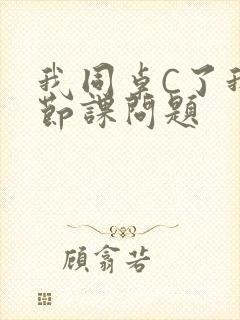 我同桌C了我
節課問題
顧翕若